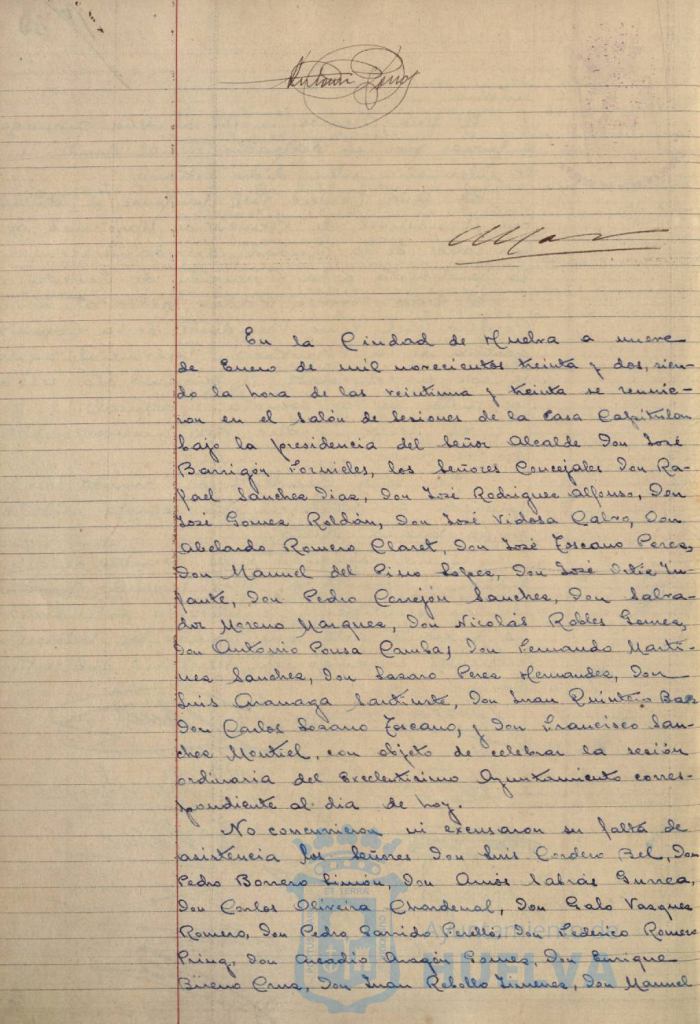 Antonio
En la Ciudad de Huelva a nueve
de Enero de mil novecientos treinta y dos, sien-
do la hora de las veintiuna y treinta se reunie-
ron en el salón de sesiones de la Casa Capitular
bajo la presidencia del Señor Alcalde Don José
Barrigón Fornieles, los Señores Concejales Don Ra-
fael Sanchez Diaz, Don José Rodriguez Alfonso, Don
José Gomez Roldán, Don José Vidosa Calvo, Don
Abelardo Romero Claret, Don José Toscano Perez,
Don Manuel del Pino Lopez, Don José Ortiz In-
fante, Don Pedro Cerrejón Sanchez, Don Salva-
dor Moreno Marquez, Don Nicolás Robles Gomez,
Don Antonio Pousa Camba, Don Fernando Marti-
nez Sanchez, Don Lazaro Perez Hernandez, Don
Luis Don Juan Quintero Baez
Don Carlos Lozano Toscano, y Don Francisco San-
chez Montiel, con objeto de celebrar la sesión
ordinaria del Excelentisimo Ayuntamiento corres-
pondiente al dia de hoy.
No concurrieron ni excusaron su falta de
asistencia los Señores Don Luis Cordero Bel, Don
Pedro Borrero Limón, Don Amós Sabrás Gurrea,
Don Carlos Oliveira Chardenal, Don Galo Vazquez
Romero, Don Pedro Garrido Perelló, Don Federico Romero
Don Arcadio Aragón Gomez, Don Enrique
Bueno Cruz, Don Juan Rebollo Jimenez, Don Manuel
Ayuntamiento
HUELVA